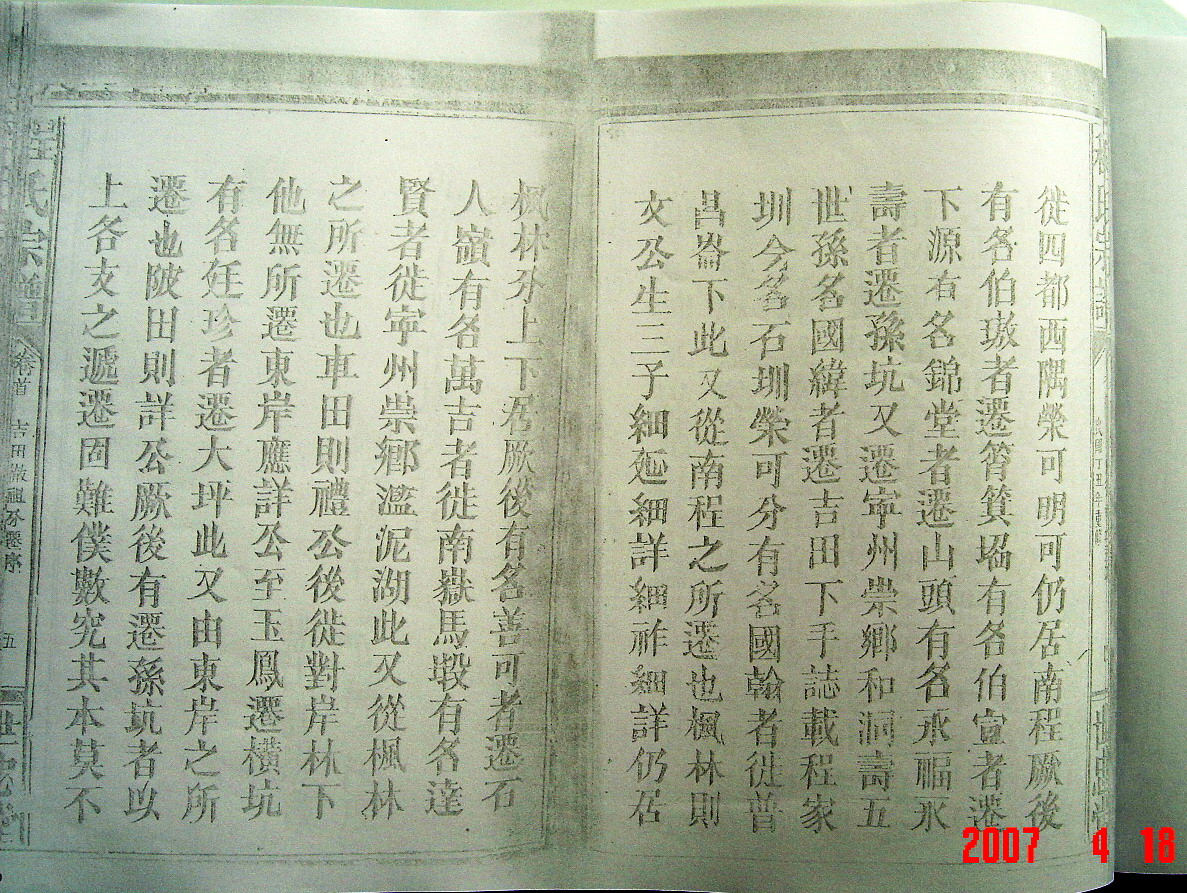 徙四都西隅榮可明可仍居南程厥後
有名伯璈者遷筲箕𡋾有名伯宣者遷
下源有名錦堂者遷山頭有名永福永
壽者遷孫坑又遷寧州崇鄉和洞壽五
世孫名國緯者遷吉田下手誌載程家
圳今名石圳榮可分有名國翰者徙普
昌崙下此又從南程之所遷也楓林則
文公生三子細𨒂細詳細祚細詳仍居
枫林分上下居厥後有名善可者遷石
人嶺有名萬吉者徙南嶽馬塅有名達
賢者徙寧州崇鄉濫泥湖此又從楓林
之所遷也車田則禮公後徙對岸林下
他無所遷東岸應詳公至玉鳳遷橫坑
有名廷珍者遷大坪此又由東岸之所
遷也陂田則詳公厥後有遷孫坑者以
上各支之遞遷固難僕數究其本莫不
程氏宗譜
卷首
吉田徹祖分遷序
五
世忠堂
2007 4 18